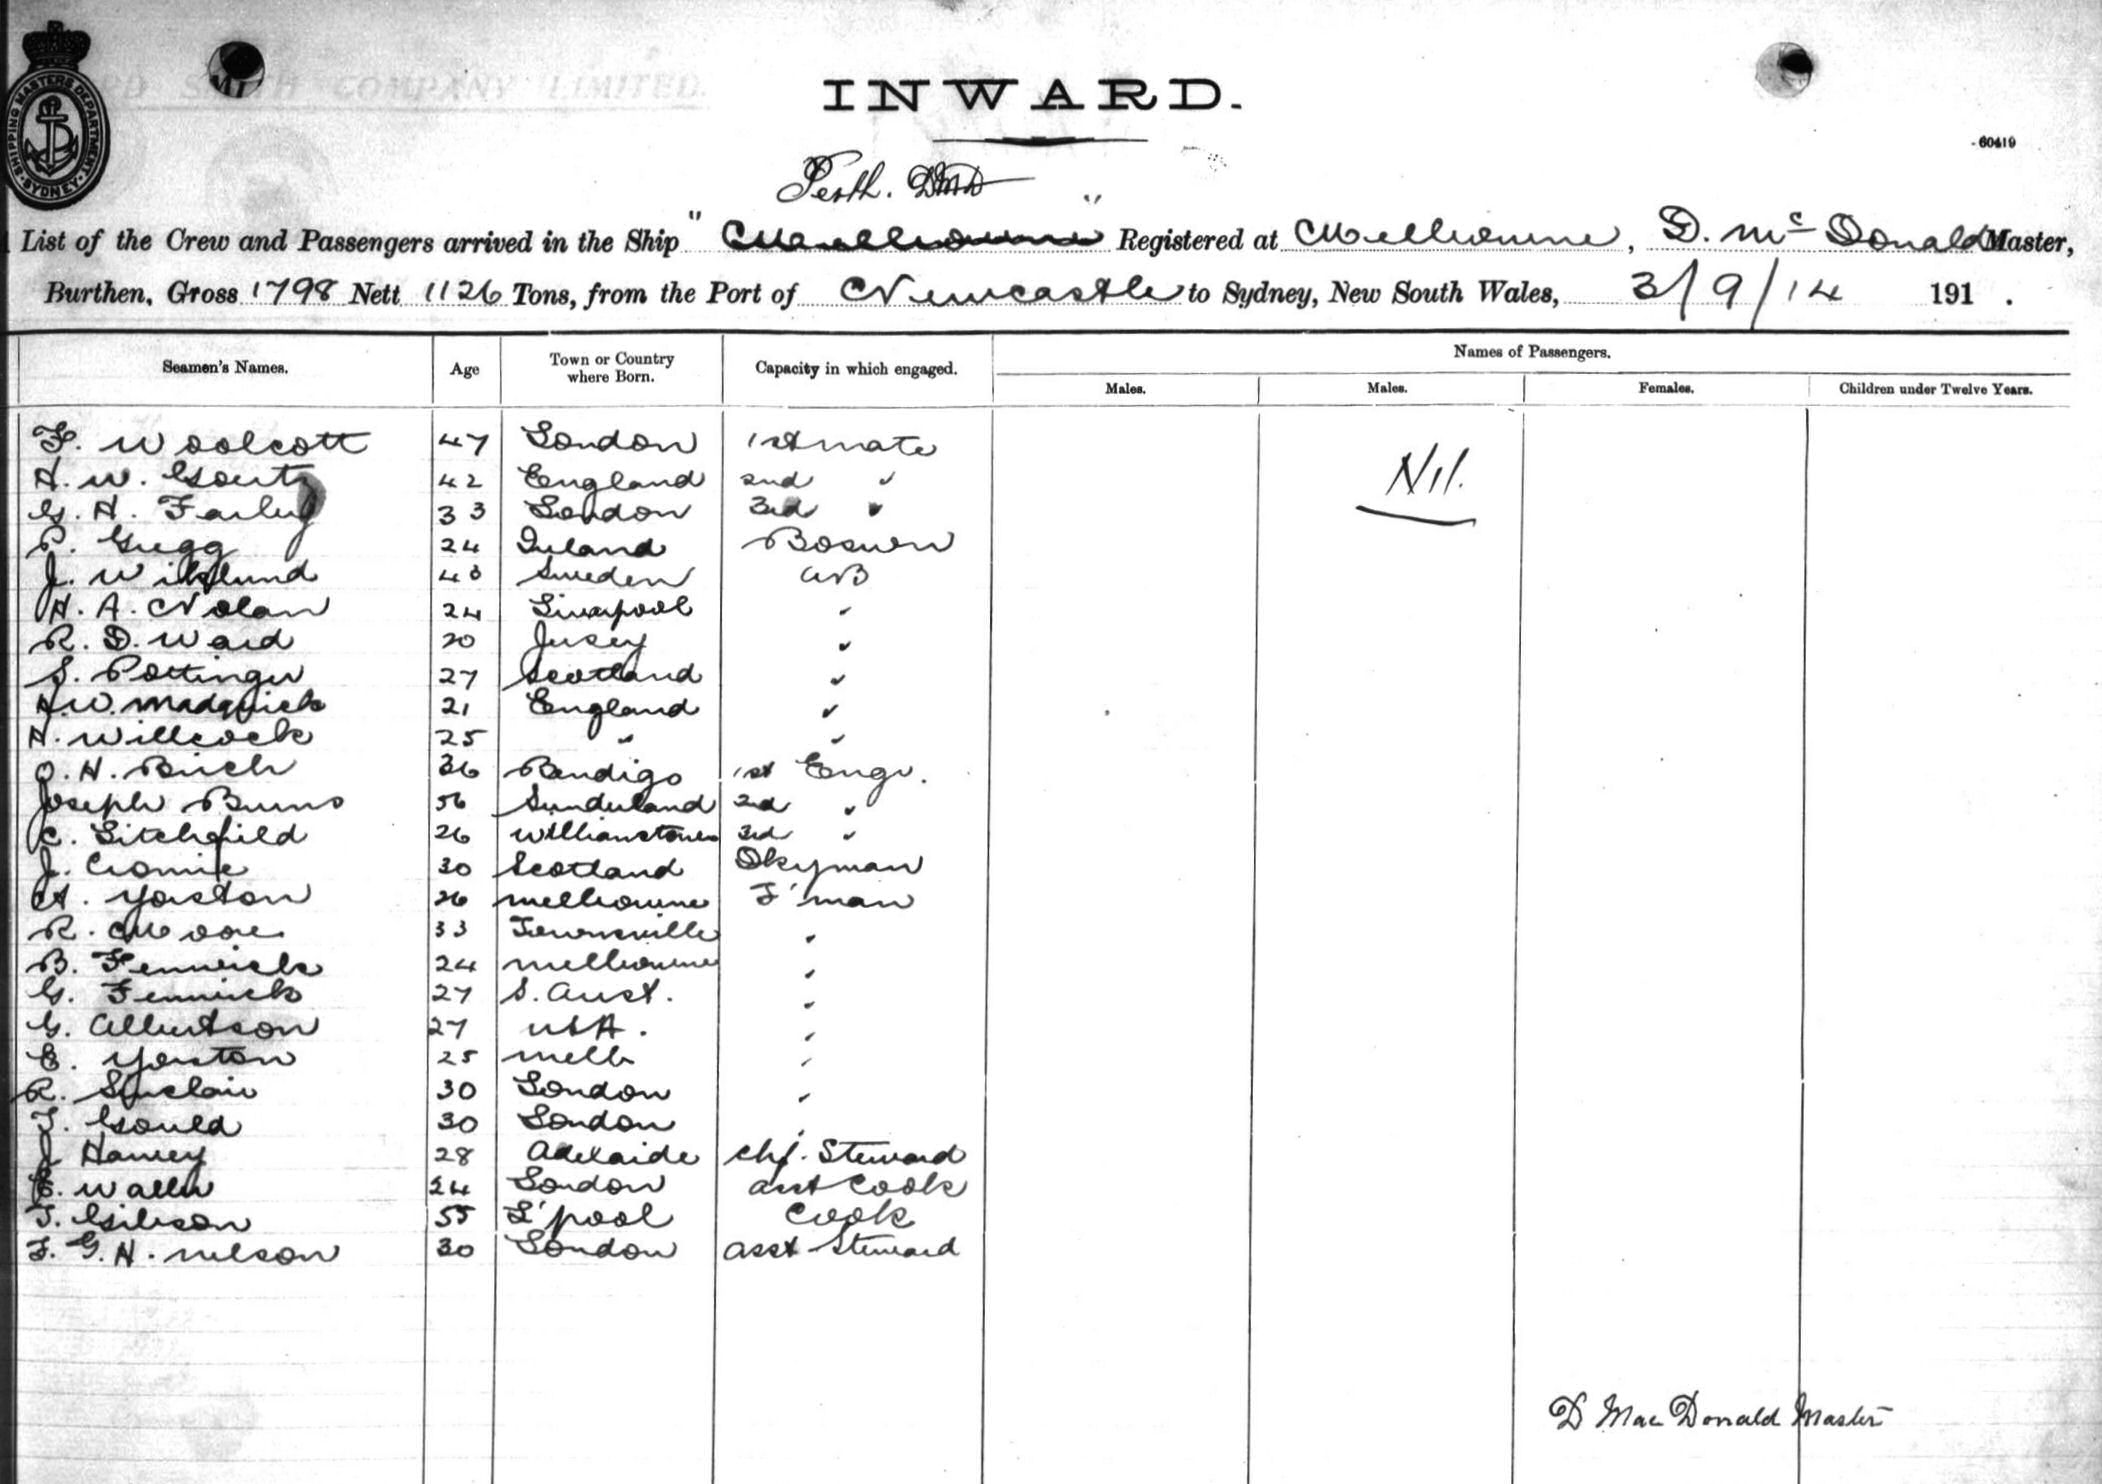 SHIPPING MASTERS DEPARTMENT
SYDNEY
SMITH COMPANY LIMITED.
INWARD.
60419
Perth. DMD
List of the Crew and Passengers arrived in the Ship " Melbourne " Registered at Melbourne, D. McDonald Master,
Burthen, Gross 1798 Nett 1126 Tons, from the Port of Newcastle to Sydney, New South Wales, 3/9/14 191 .
Names of Passengers.
Seamen's Names. Age Town or Country where Born. Capacity in which engaged. Males. Males. Females. Children under Twelve Years.
F. Woolcott 47 London 1st mate
Nil.
H. W. Goertz 42 England 2nd "
G. H. Farley 33 London 3rd "
P. Gregg 24 Ireland Boswn
J. Wiklund 43 Sweden AB
H. A. Nolan 24 Liverpool "
R. D. Ward 20 Jersey "
S. Pottinger 27 Scotland "
H. W. Madgwick 21 England "
H. Willcock 25 " "
O. H. Birch 36 Bendigo 1st Engr.
Joseph Burns 56 Sunderland 2nd "
C. Litchfield 26 Williamstown 3rd "
J. Cromie 30 Scotland Dkyman
A. Yorston 26 Melbourne F'man
R. Moore 33 Townsville "
B. Fennick 24 Melbourne "
G. Fennick 27 S. Aust. "
G. Albertson 27 USA. "
E. Yorston 25 Melb "
R. Sinclair 30 London "
T. Gould 30 London "
J Harvey 28 Adelaide Chf. Steward
E. Waller 24 London asst Cook
T. Gibson 55 L'pool Cook
F. G. H. Nelson 30 London asst Steward
D MacDonald Master